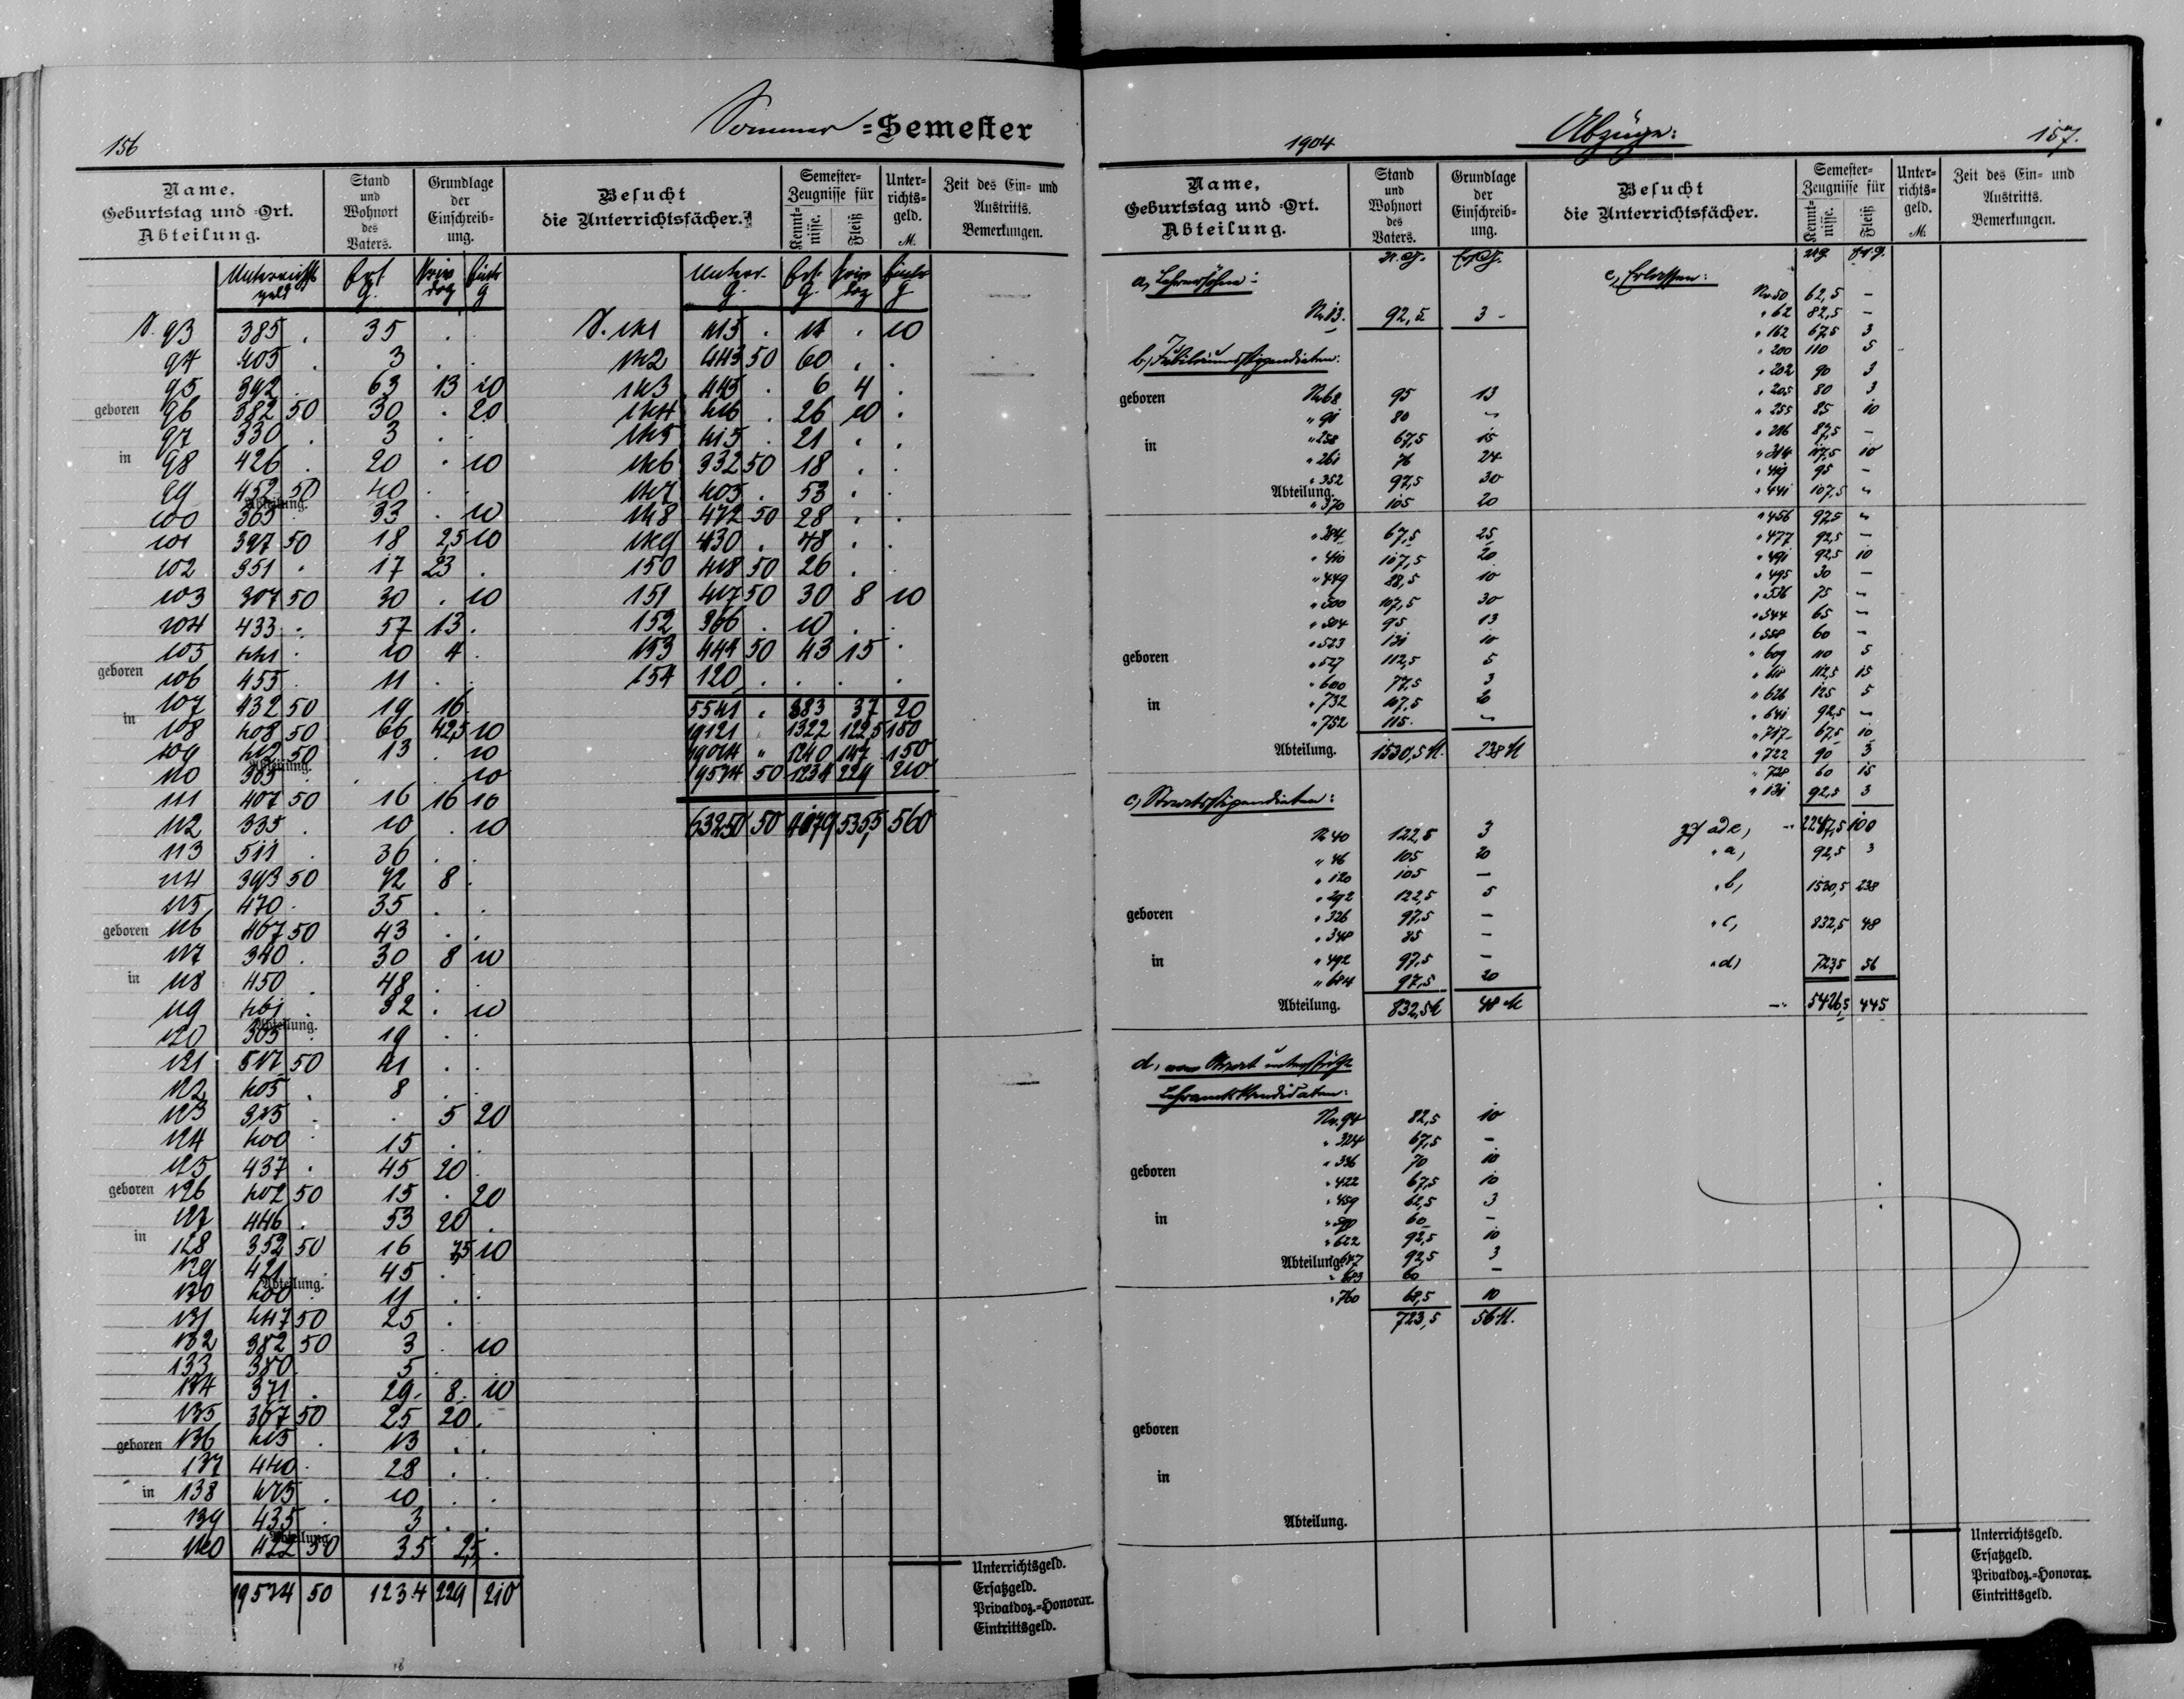 156
Sommer-Semester
Name.
Geburtstag und -Ort.
Abteilung.
Stand und Wohnort des Vaters.
Grundlage der Einschreibung.
Besucht die Unterrichtsfächer.
Semester-Zeugnisse für
Kenntnisse.
Fleiß
Unterrichtsgeld. M.
Zeit des Ein- und Austritts. Bemerkungen.
Unterrichts geld Ers. G. Priv doz Eintr g
S. 93 385 . 35 .
94 405 . 3 . .
95 392 . 63 13 20
geboren 96 382 50 30 . 20
97 330 . 3 . .
in 98 426 . 20 . 10
99 452 50 40 . .
Abteilung.
100 365 . 33 . 10
101 397 50 18 2,5 10
102 351 . 17 23 .
103 307 50 30 . 10
104 433 . 57 13 .
105 441 . 10 4 .
geboren 106 455 . 11 . .
107 432 50 19 16
in 108 408 50 66 42,5 10
109 412 50 13 . 10
Abteilung.
110 365 . . . 10
111 407 50 16 16 10
112 335 . 10 . 10
113 511 . 36 . .
114 393 50 42 8 .
115 470 . 35 . .
geboren 116 407 50 43 . .
117 340 . 30 8 10
in 118 450 . 48 . .
119 461 . 32 . 10
Abteilung.
120 305 . 19 . .
121 517 50 41 . .
122 405 . 8 . .
123 325 . . 5 20
124 400 . 15 . .
125 437 . 45 20 .
geboren 126 402 50 15 . 20
127 446 . 53 20 .
in 128 352 50 16 7,5 10
129 421 . 45 . .
Abteilung.
130 400 . 11 . .
131 447 50 25 . .
132 382 50 3 . 10
133 380 . 5 . .
134 371 . 29 8 10
135 367 50 25 20 .
geboren 136 415 . 13 . .
137 440 . 28 . .
in 138 475 . 10 . .
139 435 . 3 . .
Abteilung.
140 422 50 35 2,5 .
19574 50 1234 229 210
Unter. G. Ers. G. Priv doz Eintr g
S. 141 415 . 14 . 10
142 443 50 60 . .
143 445 . 6 4 .
144 416 . 26 10 .
145 415 . 21 . .
146 332 50 18 . .
147 405 . 53 . .
148 472 50 28 . .
149 430 . 48 . .
150 418 50 26 . .
151 417 50 30 8 10
152 366 . 10 . .
153 444 50 43 15 .
154 120 . . . .
5541 . 383 37 20
19121 . 1322 122,5 180
19014 " 1240 147 150
19574 50 1234 229 210
63250 50 4179 535,5 560
Unterrichtsgeld.
Ersatzgeld.
Privatdoz.-Honorar.
Eintrittsgeld.
1904
Abzüge:
157.
Name,
Geburtstag und -Ort.
Abteilung.
Stand und Wohnort des Vaters.
Grundlage der Einschreibung.
Besucht die Unterrichtsfächer.
Semester-Zeugnisse für
Kenntnisse.
Fleiß
Unterrichtsgeld. M.
Zeit des Ein- und Austritts. Bemerkungen.
U. G. Ers. G.
a, Lehrersöhne:
Nr. 13. 92,5 3 -
b, Jubiläumsstipendiaten:
geboren Nr. 68 95 13
" 91 80 "
in " 258 67,5 15
" 261 76 24
" 352 97,5 30
Abteilung.
" 370 105 20
" 384 67,5 25
" 410 107,5 20
" 449 88,5 10
" 500 107,5 30
" 504 95 13
" 523 131 10
geboren " 527 112,5 5
" 600 77,5 3
in " 732 107,5 20
" 752 115 . "
Abteilung. 1530,5 M. 238 M
c, Staatsstipendiaten:
Nr 40 122,5 3
" 46 105 20
" 120 105 —
" 292 122,5 5
geboren " 326 97,5 —
" 348 85 —
in " 492 97,5 —
" 684 97,5 20
Abteilung. 832,5 M 48 M
d, vom Staat unterstützte
Lehramtskandidaten:
Nr. 94 82,5 10
" 324 67,5 -
geboren " 336 70 10
" 422 67,5 10
" 459 62,5 3
in 60 -
" 622 92,5 10
Abteilung. 92,5 3
" 683 60 —
" 760 68,5 10
723,5 56 M.
geboren
in
Abteilung.
e, Erlassen:
Nr 50 62,5 -
" 62 82,5 -
" 162 67,5 3
" 200 110 5
" 202 90 3
" 205 80 3
" 255 85 10
" 286 87,5 -
" 314 117,5 10
" 419 95 -
" 441 107,5 "
" 456 97,5 "
" 477 92,5 -
" 491 92,5 10
" 495 30 —
" 536 75 "
" 544 65 -
" 558 60 -
" 609 110 5
" 611 112,5 15
" 626 125 5
" 641 92,5 "
" 717 67,5 10
" 722 90 3
" 728 60 15
" 131 92,5 3
ad e, 2247,5 100
" a, 92,5 3
" b, 1530,5 238
" c, 832,5 48
" d, 723,5 56
5426,5 445
Unterrichtsgeld.
Ersatzgeld.
Privatdoz.-Honorar.
Eintrittsgeld.